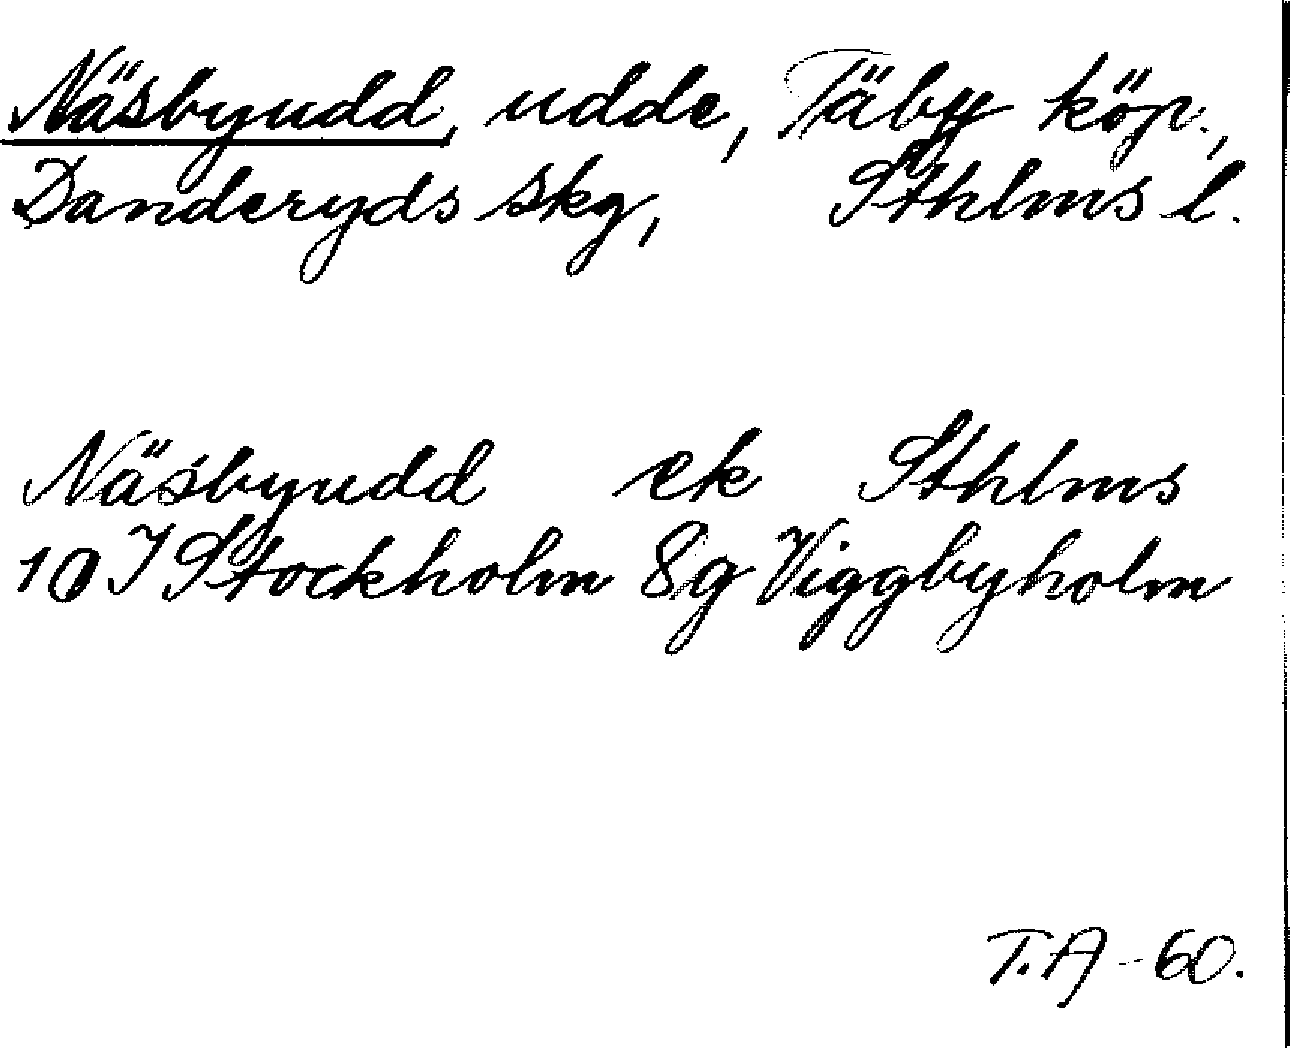 Näsbyudd, udde, Täby köp.,
Danderyds skg, Sthlms l.
Näsbyudd ek Sthlms
10 I Stockholm 8g Viggbyholm
T.A -60.